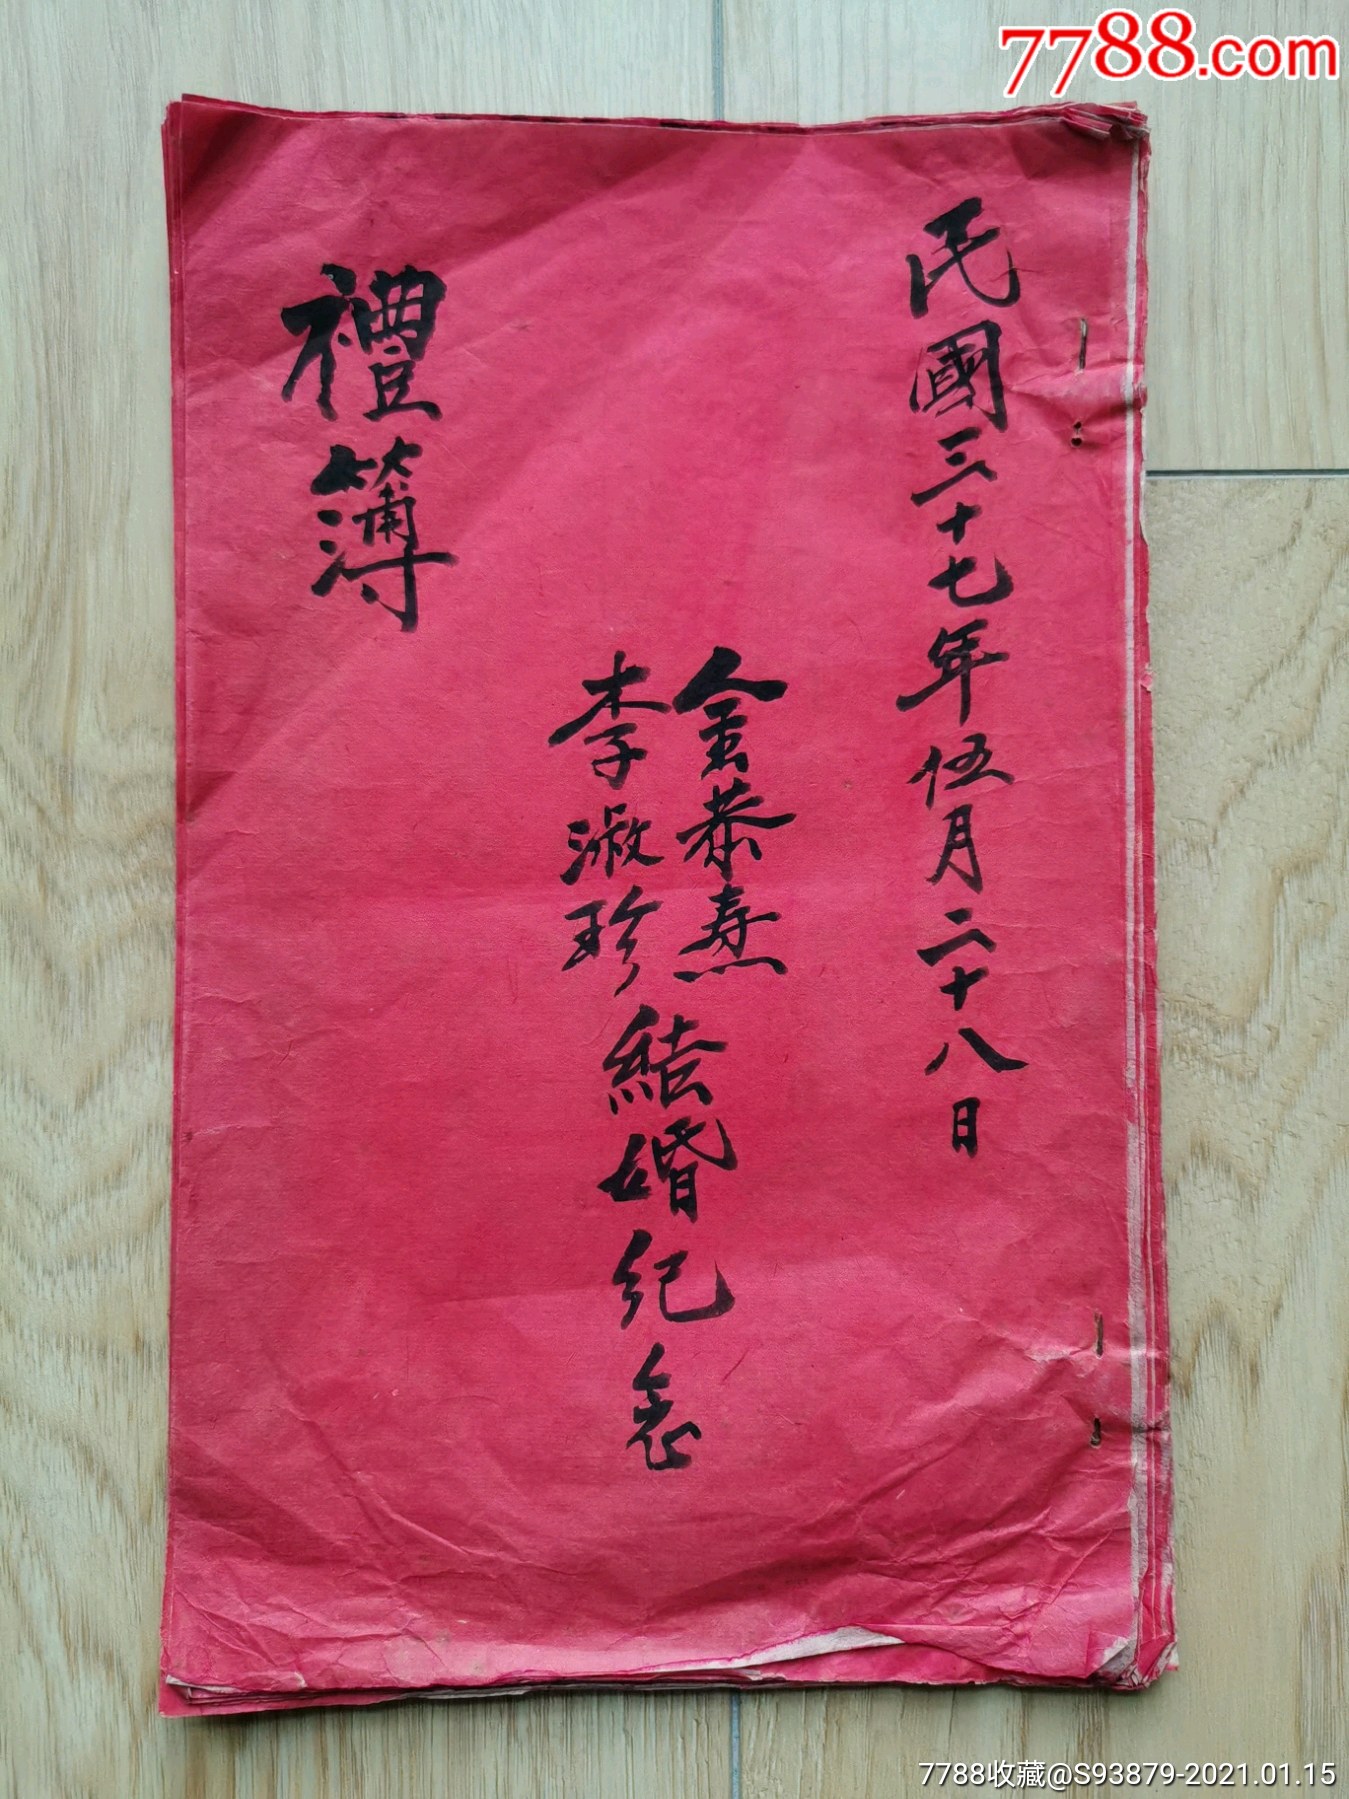 7788.com
民國三十七年伍月二十八日
金恭焘
李淑珍
結婚紀念
禮簿
7788收藏@S93879-2021.01.15